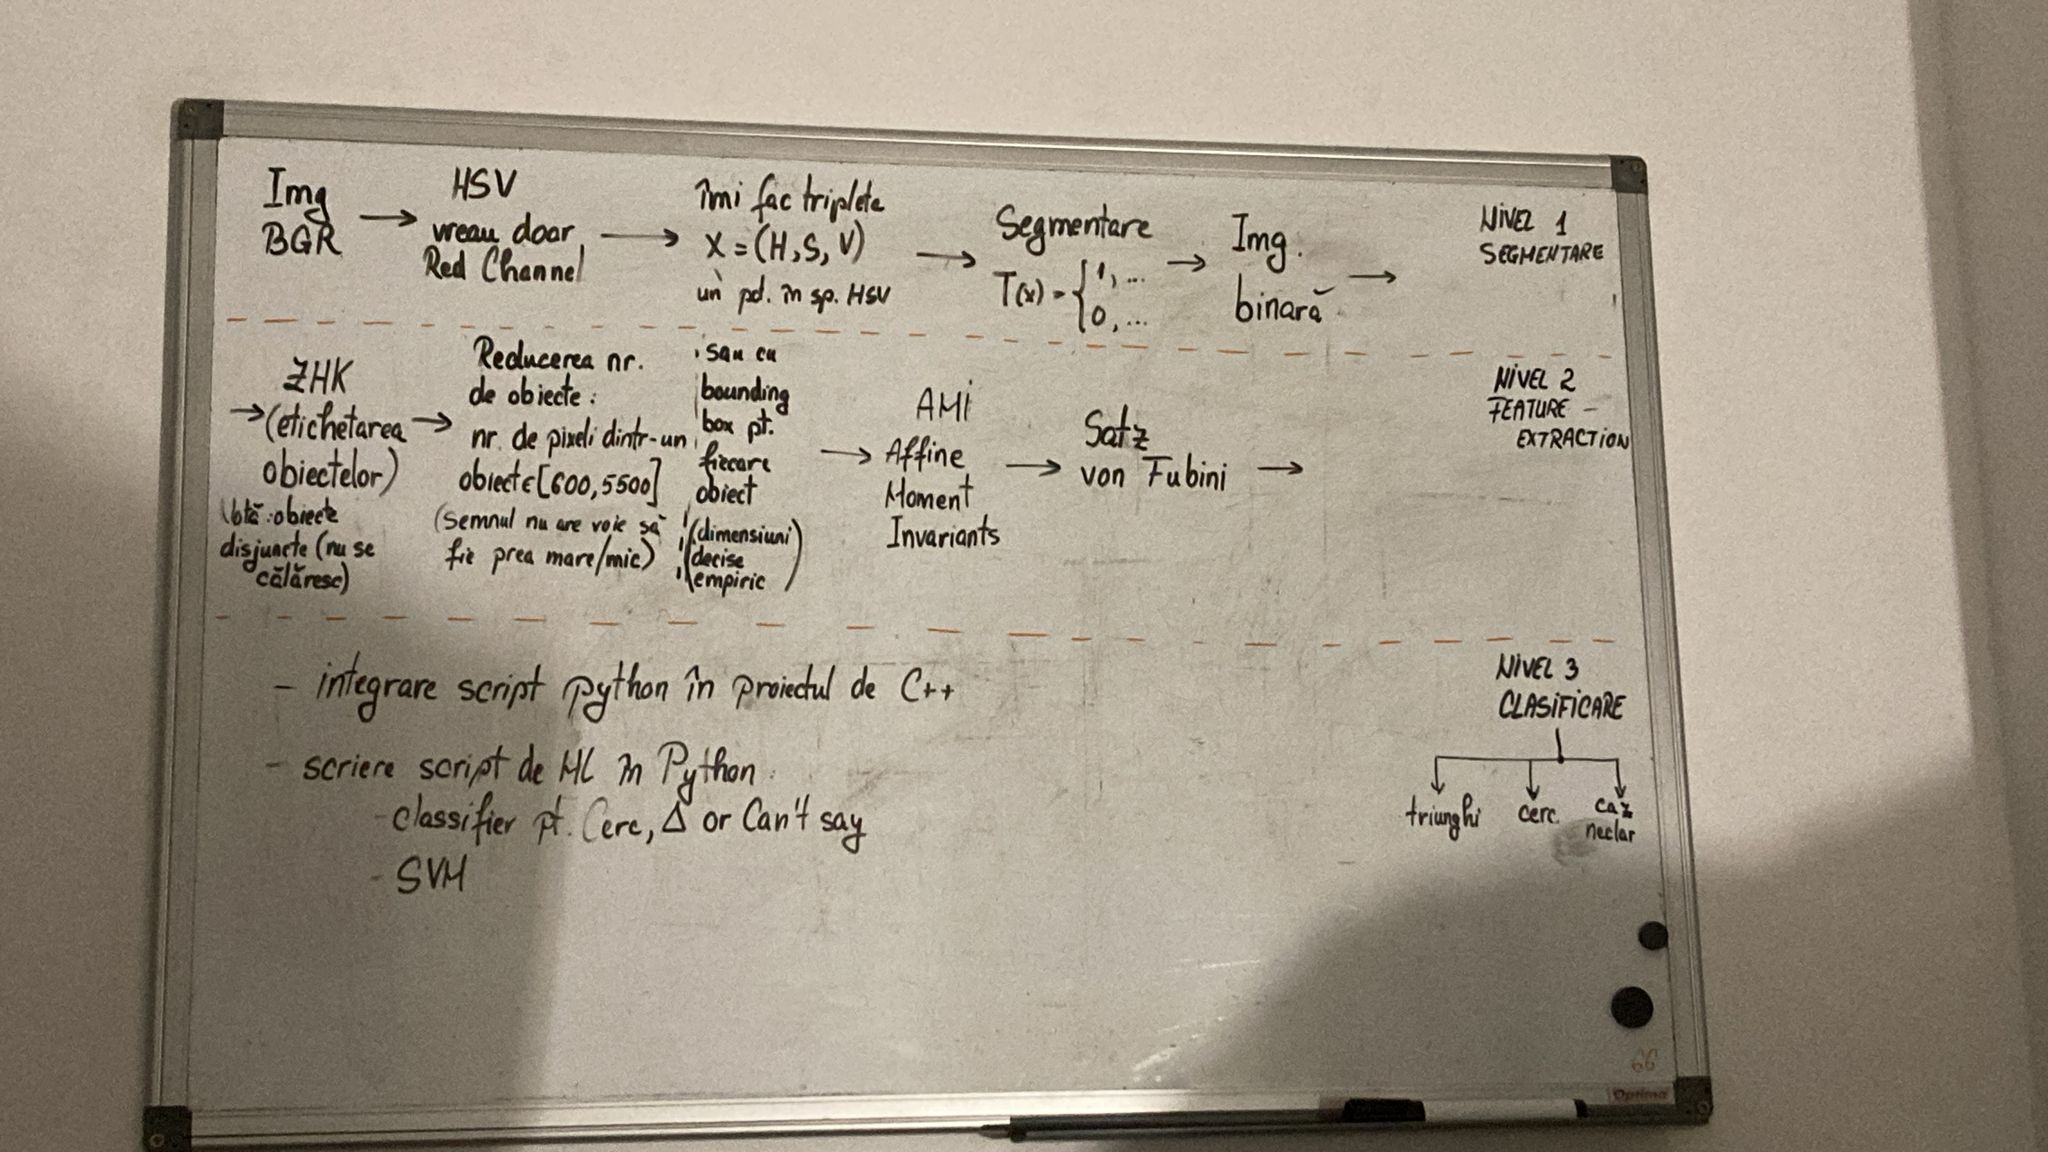 Img
BGR
→
HSV
vreau doar
Red Channel
→
îmi fac triplete
X = (H, S, V)
un pct. în sp. HSV
→
Segmentare
T(x) = { 1, ...
0, ...
→
Img.
binară
→
NIVEL 1
SEGMENTARE
→
ZHK
(etichetarea
obiectelor)
Notă: obiecte
disjuncte (nu se
călăresc)
→
Reducerea nr.
de obiecte:
nr. de pixeli dintr-un
obiect ∈ [600, 5500]
(semnul nu are voie să
fie prea mare/mic)
sau cu
bounding
box pt.
fiecare
obiect
(dimensiuni
decise
empiric)
→
AMI
Affine
Moment
Invariants
→
Satz
von Fubini
→
NIVEL 2
FEATURE -
EXTRACTION
- integrare script python în proiectul de C++
- scriere script de ML în Python:
- classifier pt. Cerc, Δ or Can't say
- SVM
NIVEL 3
CLASIFICARE
triunghi
cerc
caz
neclar
66
Optima